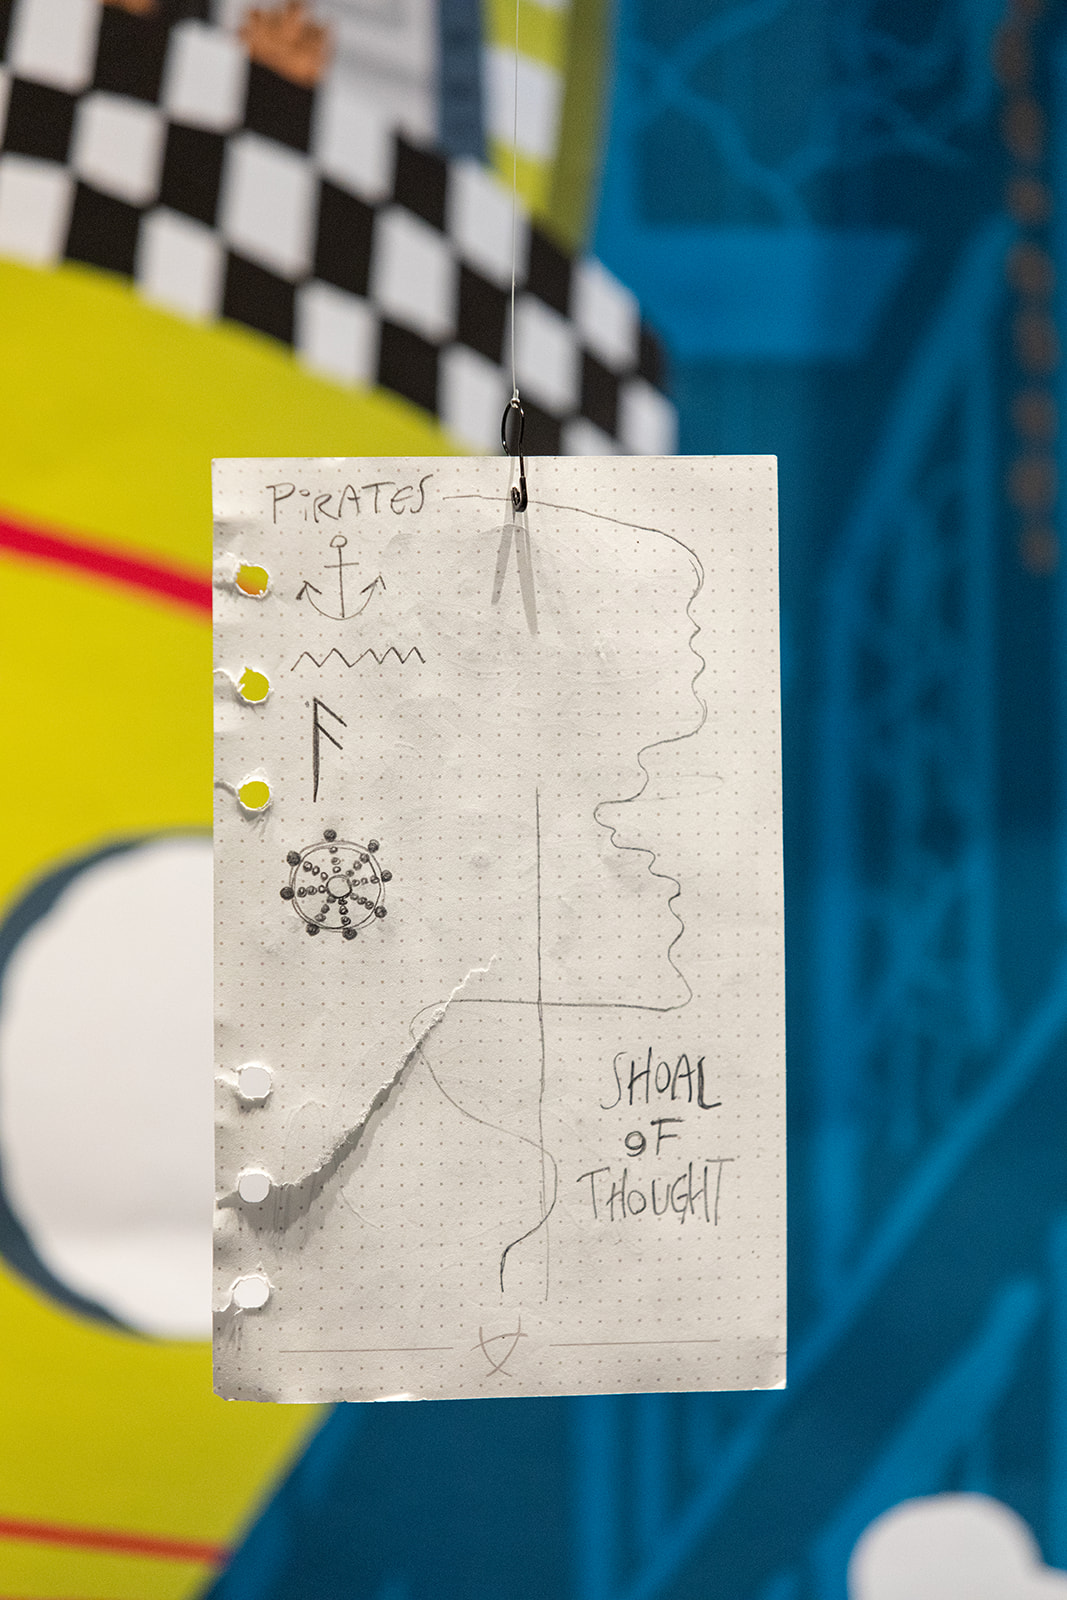 PiRATES
SHOAL
OF
THOUGHT